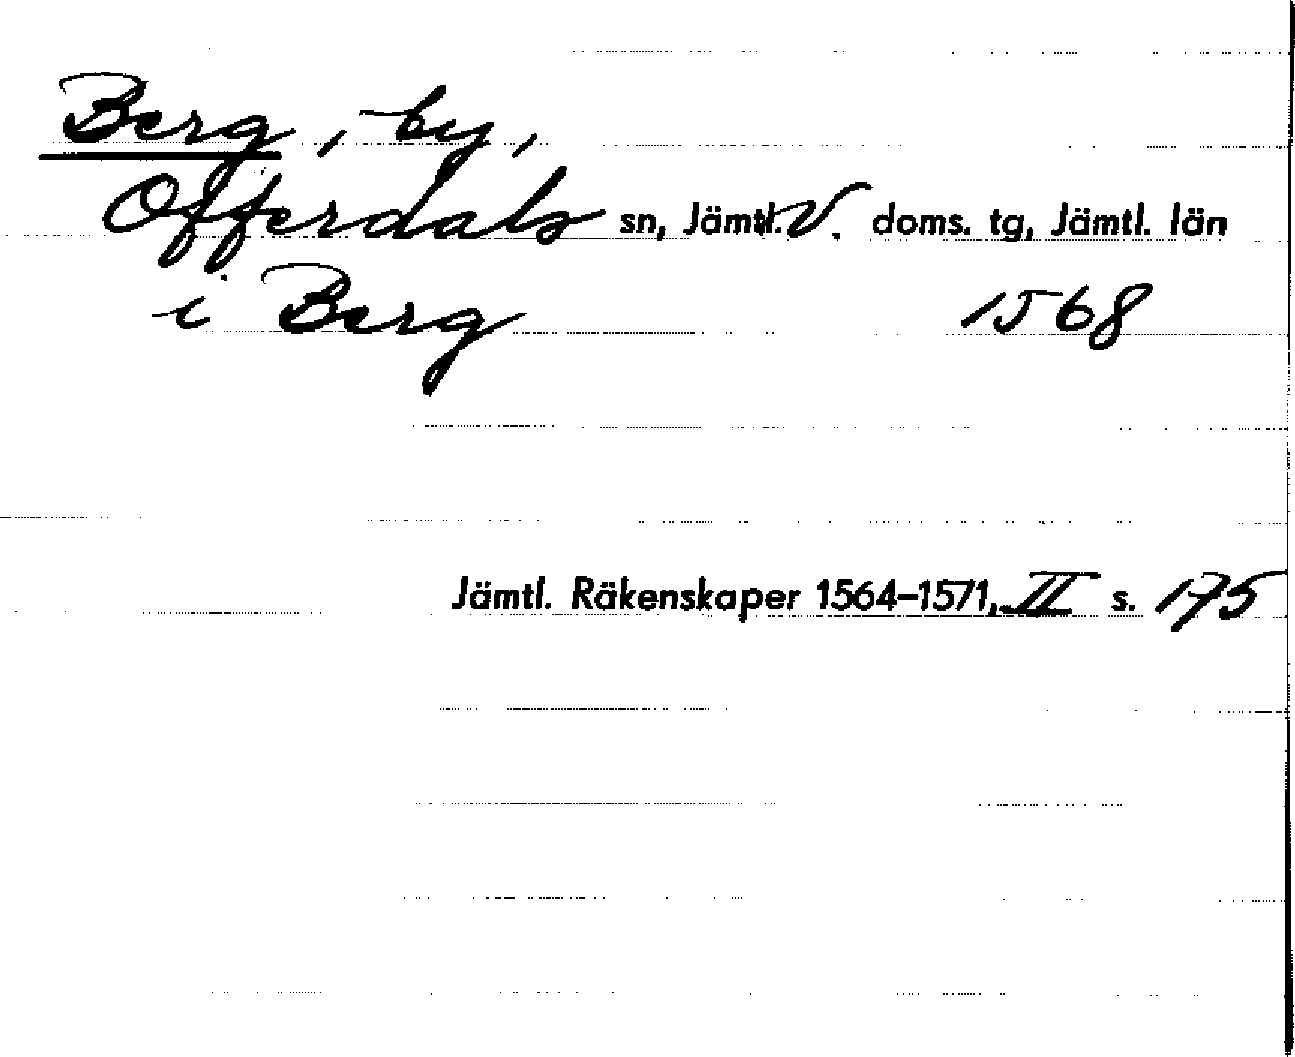 Berg, by,
Offerdals sn, Jämtl. V. doms. tg, Jämtl. län
i Berg 1568
Jämtl. Räkenskaper 1564–1571, II s. 175